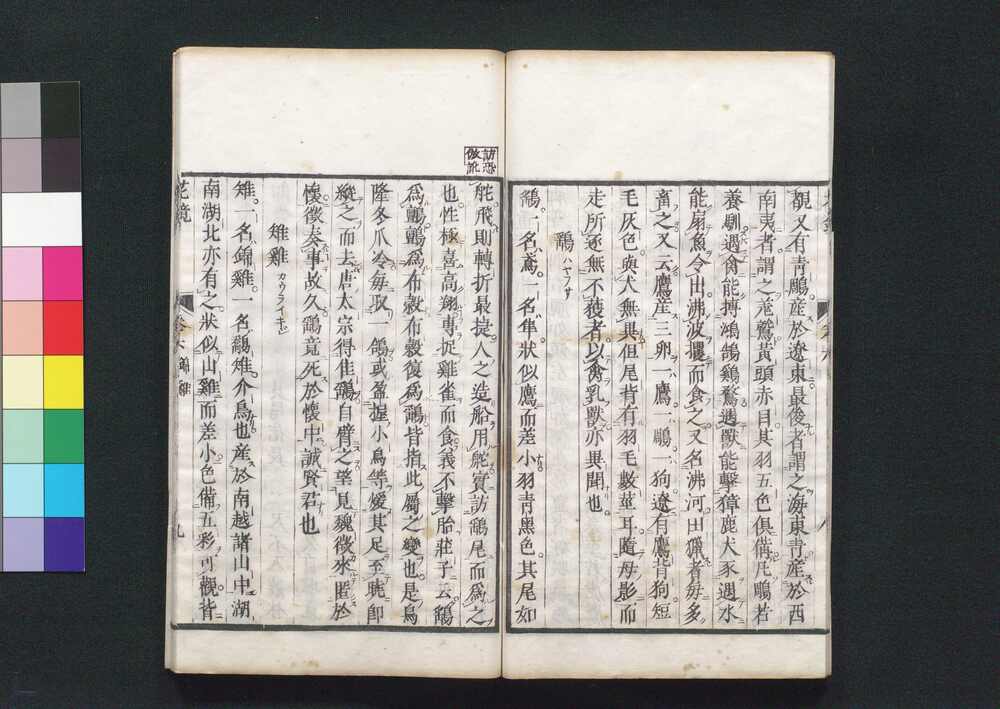 覩又有青鵰産於遼東最後者謂之海東青産於西
南夷者謂之羗鷲黃頭赤目其羽五色俱備凡鵰若
養馴遇禽能搏鴻鵠鷄鶩遇獸能擊獐鹿犬豕遇水
能扇魚令出沸波攫而食之又名沸河田獵者毎多
畜之又云鷹産三卵一鷹一鵰一狗遼有鷹背狗短
毛灰色與犬無異但尾背有羽毛數莖耳隨母影而
走所逐無不獲者以禽乳獸亦異聞也
鷂ハヤブサ
鷂一名鳶一名隼狀似鷹而差小羽青黑色其尾如
訪恐
倣訛
舵飛則轉折最捷人之造船用舵實訪鷂尾而爲之
也性極喜高翔專捉雞雀而食義不擊胎莊子云鷂
爲鸇鸇爲布穀布穀復爲鷂皆指此屬之變也是鳥
隆冬爪冷毎取一鴿或盈握小鳥等煖其足至曉卽
縱之而去唐太宗得隹鷂自臂之望見魏徵來匿於
懷徵奏事故久鷂竟死於懷中誠賢君也
雉雞カウライキジ
雉一名錦雞一名鷮雉介鳥也産於南越諸山中湖
南湖北亦有之狀似山雞而差小色備五彩可觀皆
花鏡
卷六
九